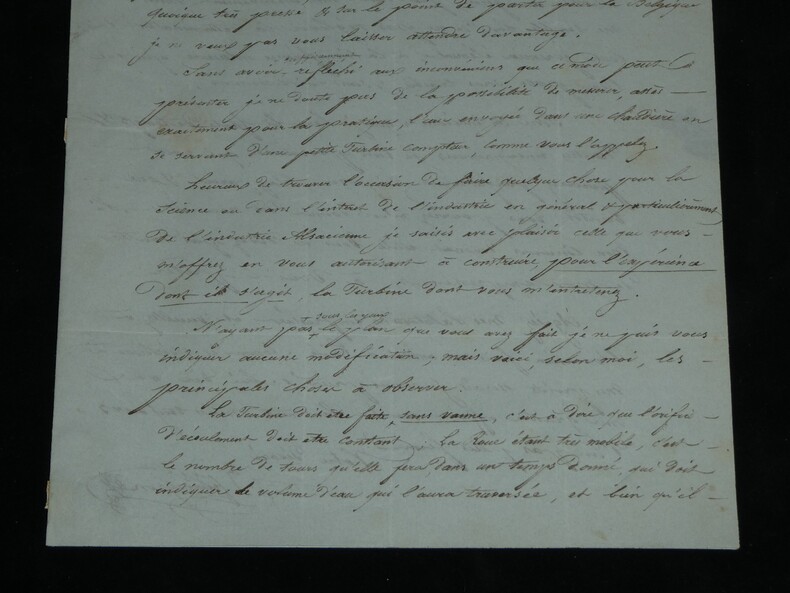 quoique très pressé & sur le point de partir pour la Belgique
je ne veux pas vous laisser attendre davantage.
Sans avoir reflechi aux inconvéniens que ce mode peut
présenter je ne doute pas de la possibilité de mesurer, assés
exactement pour la pratique, l'eau envoyée dans une chaudière en
se servant d'une petite Turbine compteur comme vous l'appelez.
heureux de trouver l'occasion de faire quelque chose pour la
science ou dans l'intéret de l'industrie en général & particulièrement
de l'industrie Alsacienne je saisis avec plaisir celle que vous
m'offrez en vous autorisant à construire pour l'expérience
dont il s'agit, la Turbine dont vous m'entretenez.
N'ayant pas sous les yeux le plan que vous avez fait je ne puis vous
indiquer aucune modification, mais voici, selon moi, les
principales choses à observer.
La Turbine doit être faite, sans vanne, c'est à dire que l'orifice
d'écoulement doit etre constant. La Roue étant très mobile, c'est
le nombre de tours qu'elle fera dans un temps donné, qui doit
indiquer le volume d'eau qui l'aura traversée, et bien qu'il